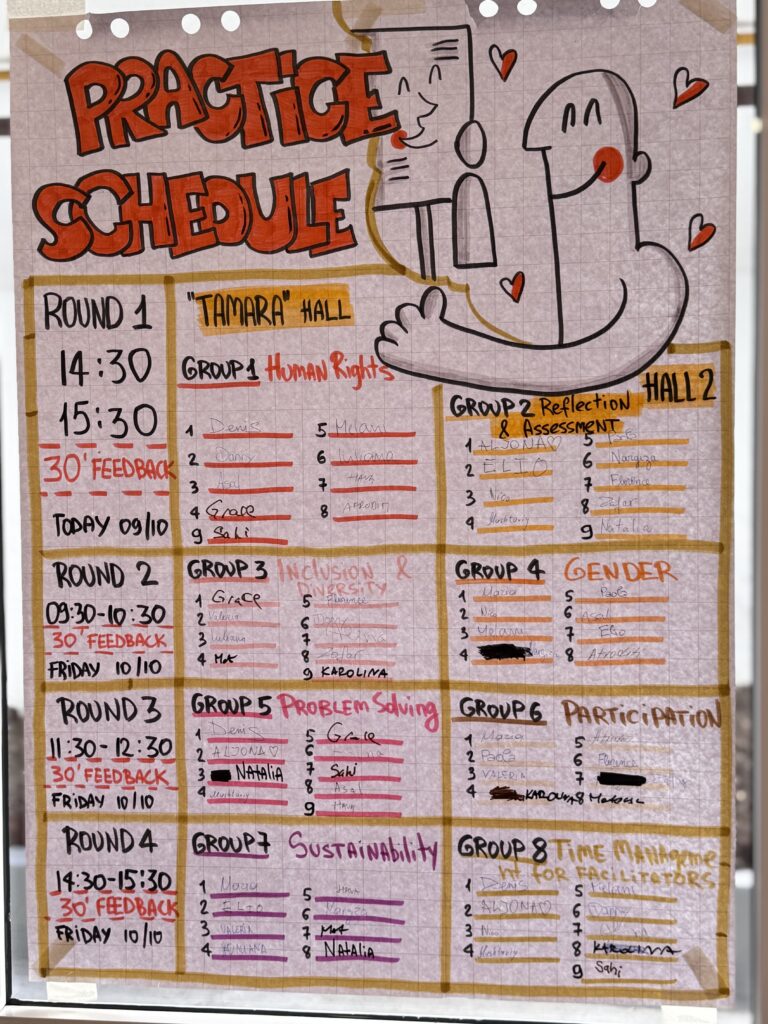 PRACTICE
SCHEDULE
ROUND 1
14:30
15:30
30' FEEDBACK
TODAY 09/10
"TAMARA" HALL
GROUP 1 Human Rights
1 Denis
2 Danny
3 Asal
4 Grace
5 Melani
6 Iuliana
7
8 AFRODITI
9 Sabi
HALL 2
GROUP 2 Reflection
& Assessment
1 ALJONA♡
2 ELIO
3 Nico
4
5
6 Nargiza
7 Florence
8 Zafar
9 Natalia
ROUND 2
09:30-10:30
30' FEEDBACK
FRIDAY 10/10
GROUP 3 INCLUSION &
DIVERSITY
1 Grace
2 Valeria
3 Iuliana
4 MOT
5 Florence
6 Danny
7
8 Zafar
9 KAROLINA
GROUP 4 GENDER
1 Maria
2 Nico
3 Melani
4
5 Paola
6 Asal
7 Elio
8 Afroditi
ROUND 3
11:30-12:30
30' FEEDBACK
FRIDAY 10/10
GROUP 5 PROBLEM SOlving
1 Denis
2 ALJONA♡
3 NATALIA
4
5 Grace
6
7 Sabi
8 Asal
9
GROUP 6 PARTICIPATION
1 Maria
2 Paola
3 VALERIA
4 KAROLINA
5
6 Florence
7
8
ROUND 4
14:30-15:30
30' FEEDBACK
FRIDAY 10/10
GROUP 7 SUSTAINABILITY
1
2 ELIO
3 VALERIA
4
5
6
7 MOT
8 NATALIA
GROUP 8 TIME MANAGEME
NT FOR FACILITATORS
1 Denis
2 ALJONA♡
3 Nico
4
5 Melani
6 Danny
7
8 KAROLINA
9 Sabi